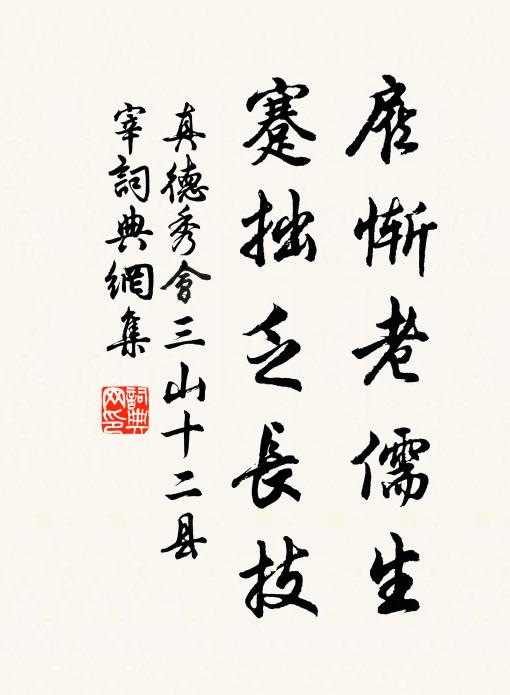 慚老儒生
蹇拙乏長技
真德秀會三山十二县
宰詞典網集
詞典
网印